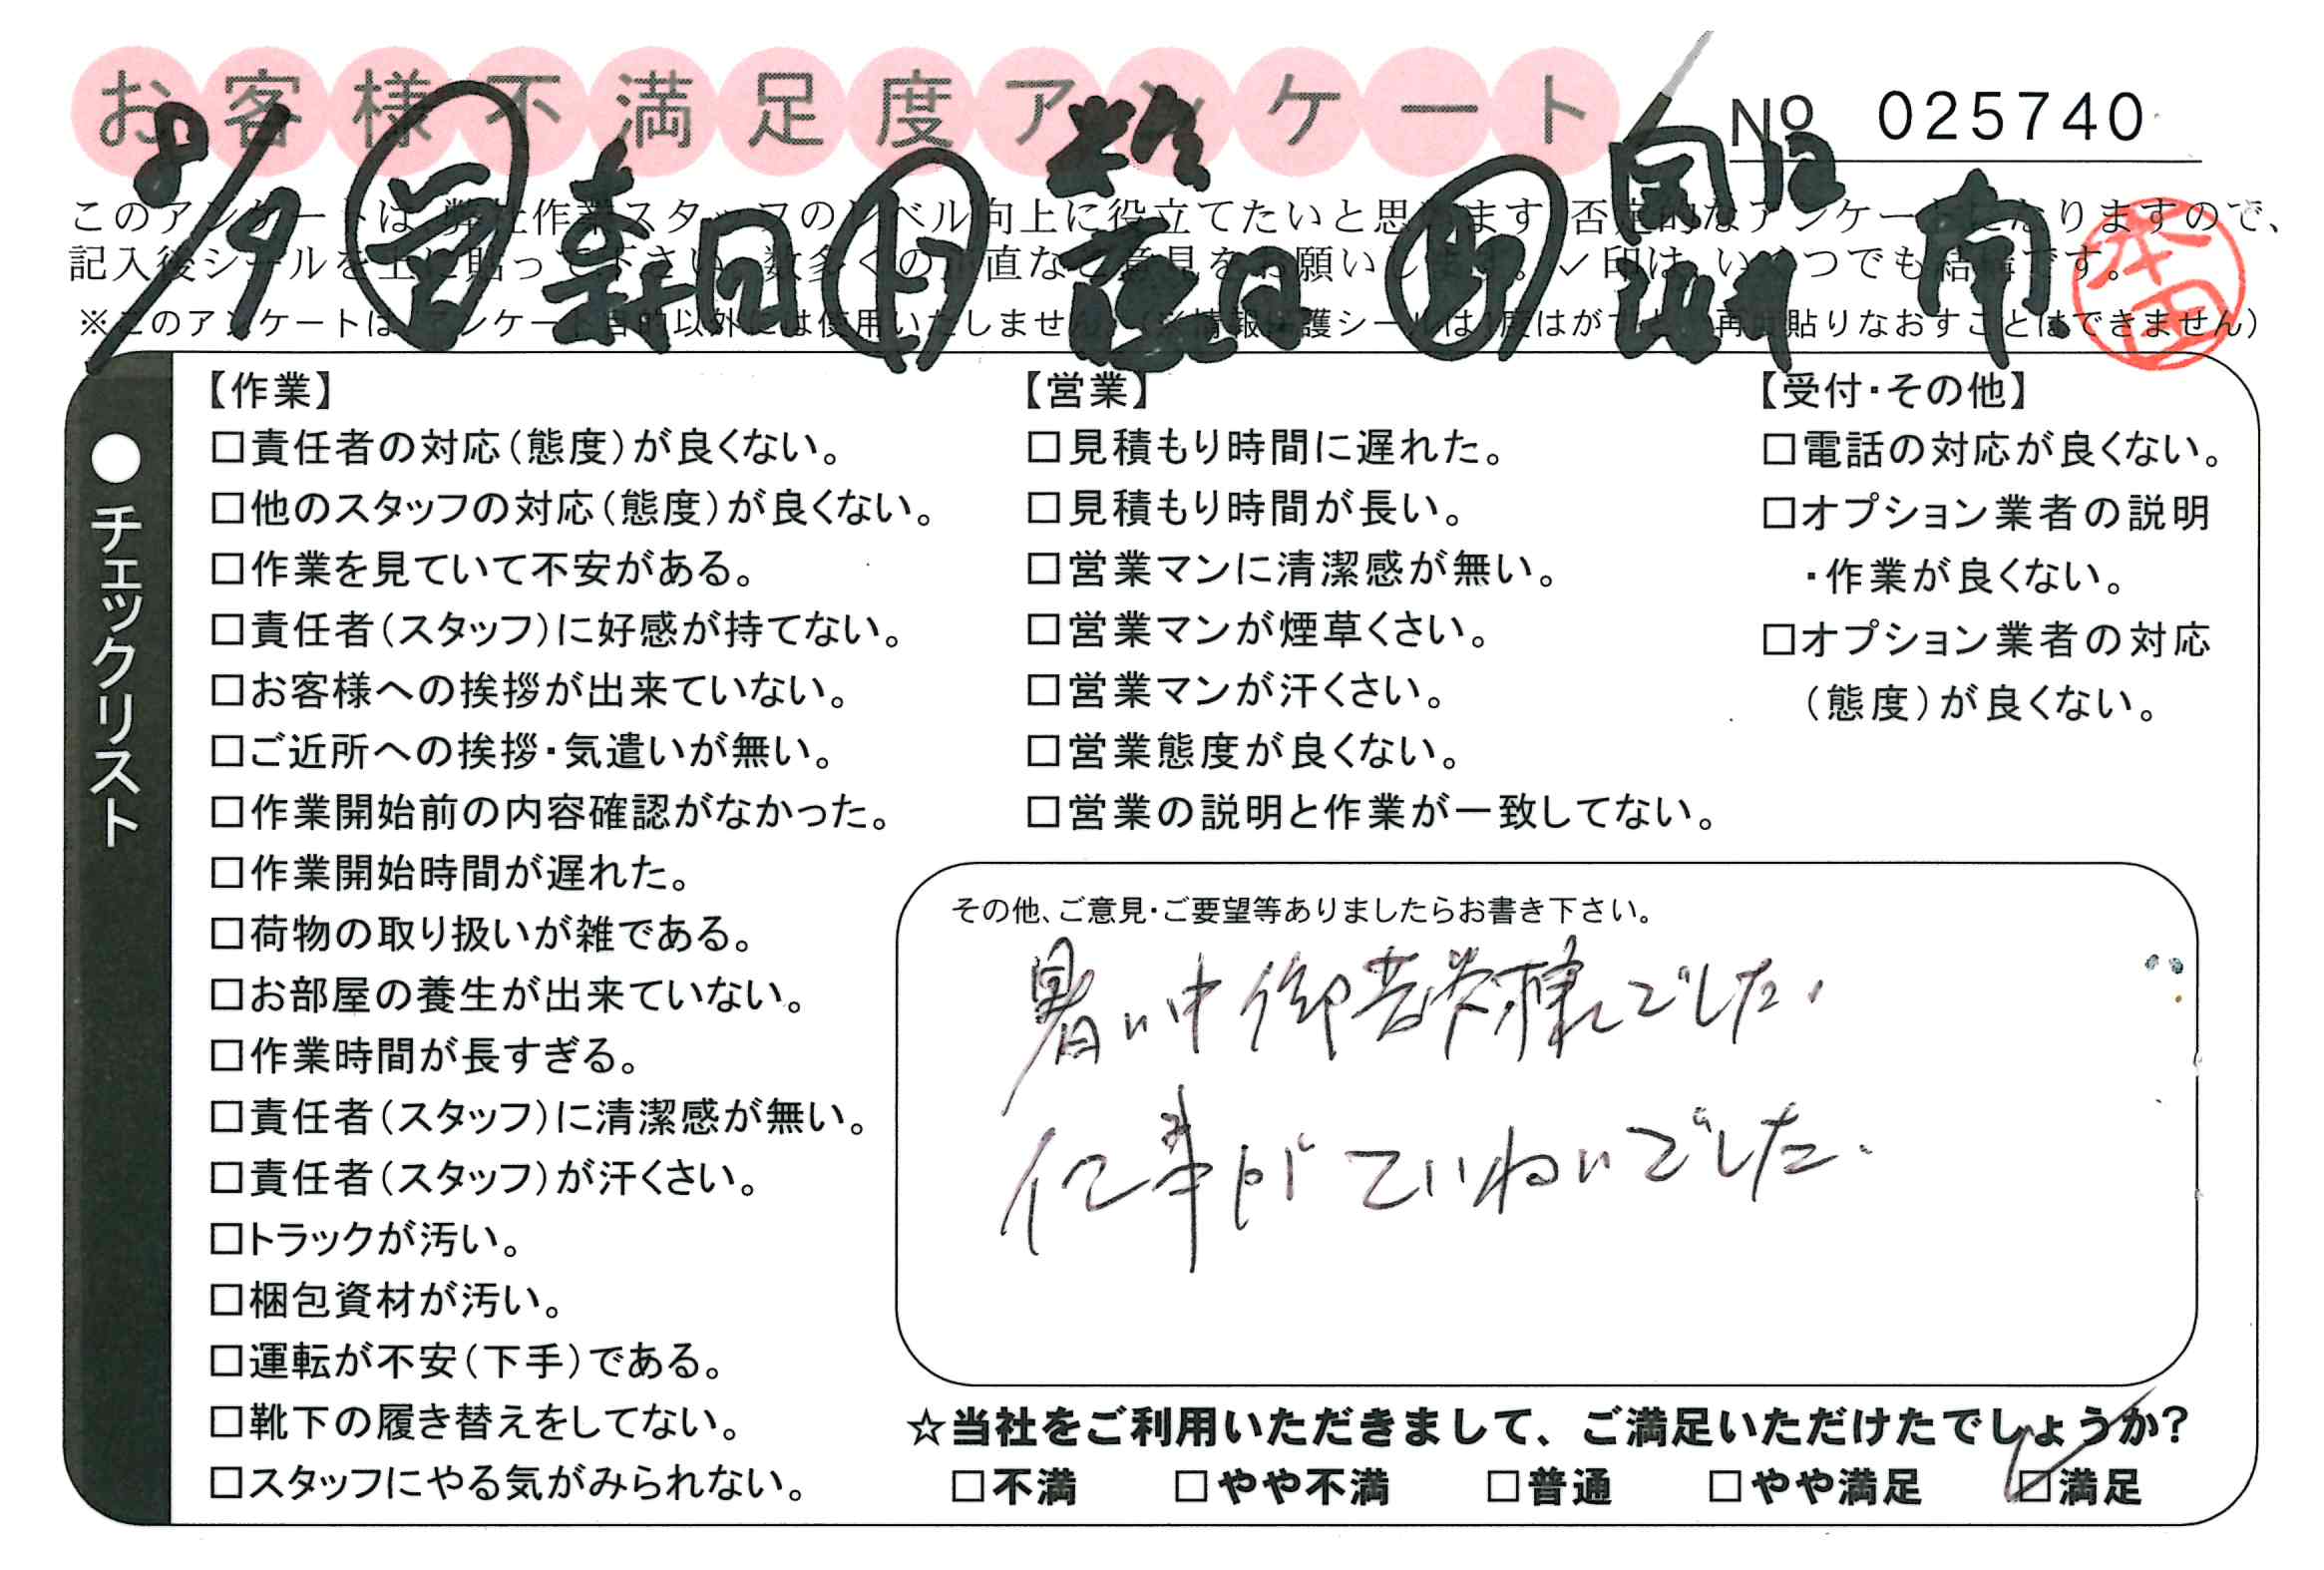 お客様不満足度アンケート
No 025740
8/9 営 ト 助 南
本田
このアンケートは、弊社作業スタッフのレベル向上に役立てたいと思います。否定的なアンケートになりますので、
記入後シールを上に貼って下さい。数多くの正直なご意見をお願いします。✓印は、いくつでも結構です。
※このアンケートは、アンケート目的以外には使用いたしません。(※情報保護シールは1度はがすと、再度貼りなおすことはできません)
●チェックリスト
【作業】
□責任者の対応(態度)が良くない。
□他のスタッフの対応(態度)が良くない。
□作業を見ていて不安がある。
□責任者(スタッフ)に好感が持てない。
□お客様への挨拶が出来ていない。
□ご近所への挨拶・気遣いが無い。
□作業開始前の内容確認がなかった。
□作業開始時間が遅れた。
□荷物の取り扱いが雑である。
□お部屋の養生が出来ていない。
□作業時間が長すぎる。
□責任者(スタッフ)に清潔感が無い。
□責任者(スタッフ)が汗くさい。
□トラックが汚い。
□梱包資材が汚い。
□運転が不安(下手)である。
□靴下の履き替えをしてない。
□スタッフにやる気がみられない。
【営業】
□見積もり時間に遅れた。
□見積もり時間が長い。
□営業マンに清潔感が無い。
□営業マンが煙草くさい。
□営業マンが汗くさい。
□営業態度が良くない。
□営業の説明と作業が一致してない。
【受付・その他】
□電話の対応が良くない。
□オプション業者の説明
・作業が良くない。
□オプション業者の対応
(態度)が良くない。
その他、ご意見・ご要望等ありましたらお書き下さい。
暑い中御苦労様でした.
仕事がていねいでした.
☆当社をご利用いただきまして、ご満足いただけたでしょうか?
□不満 □やや不満 □普通 □やや満足 ☑満足